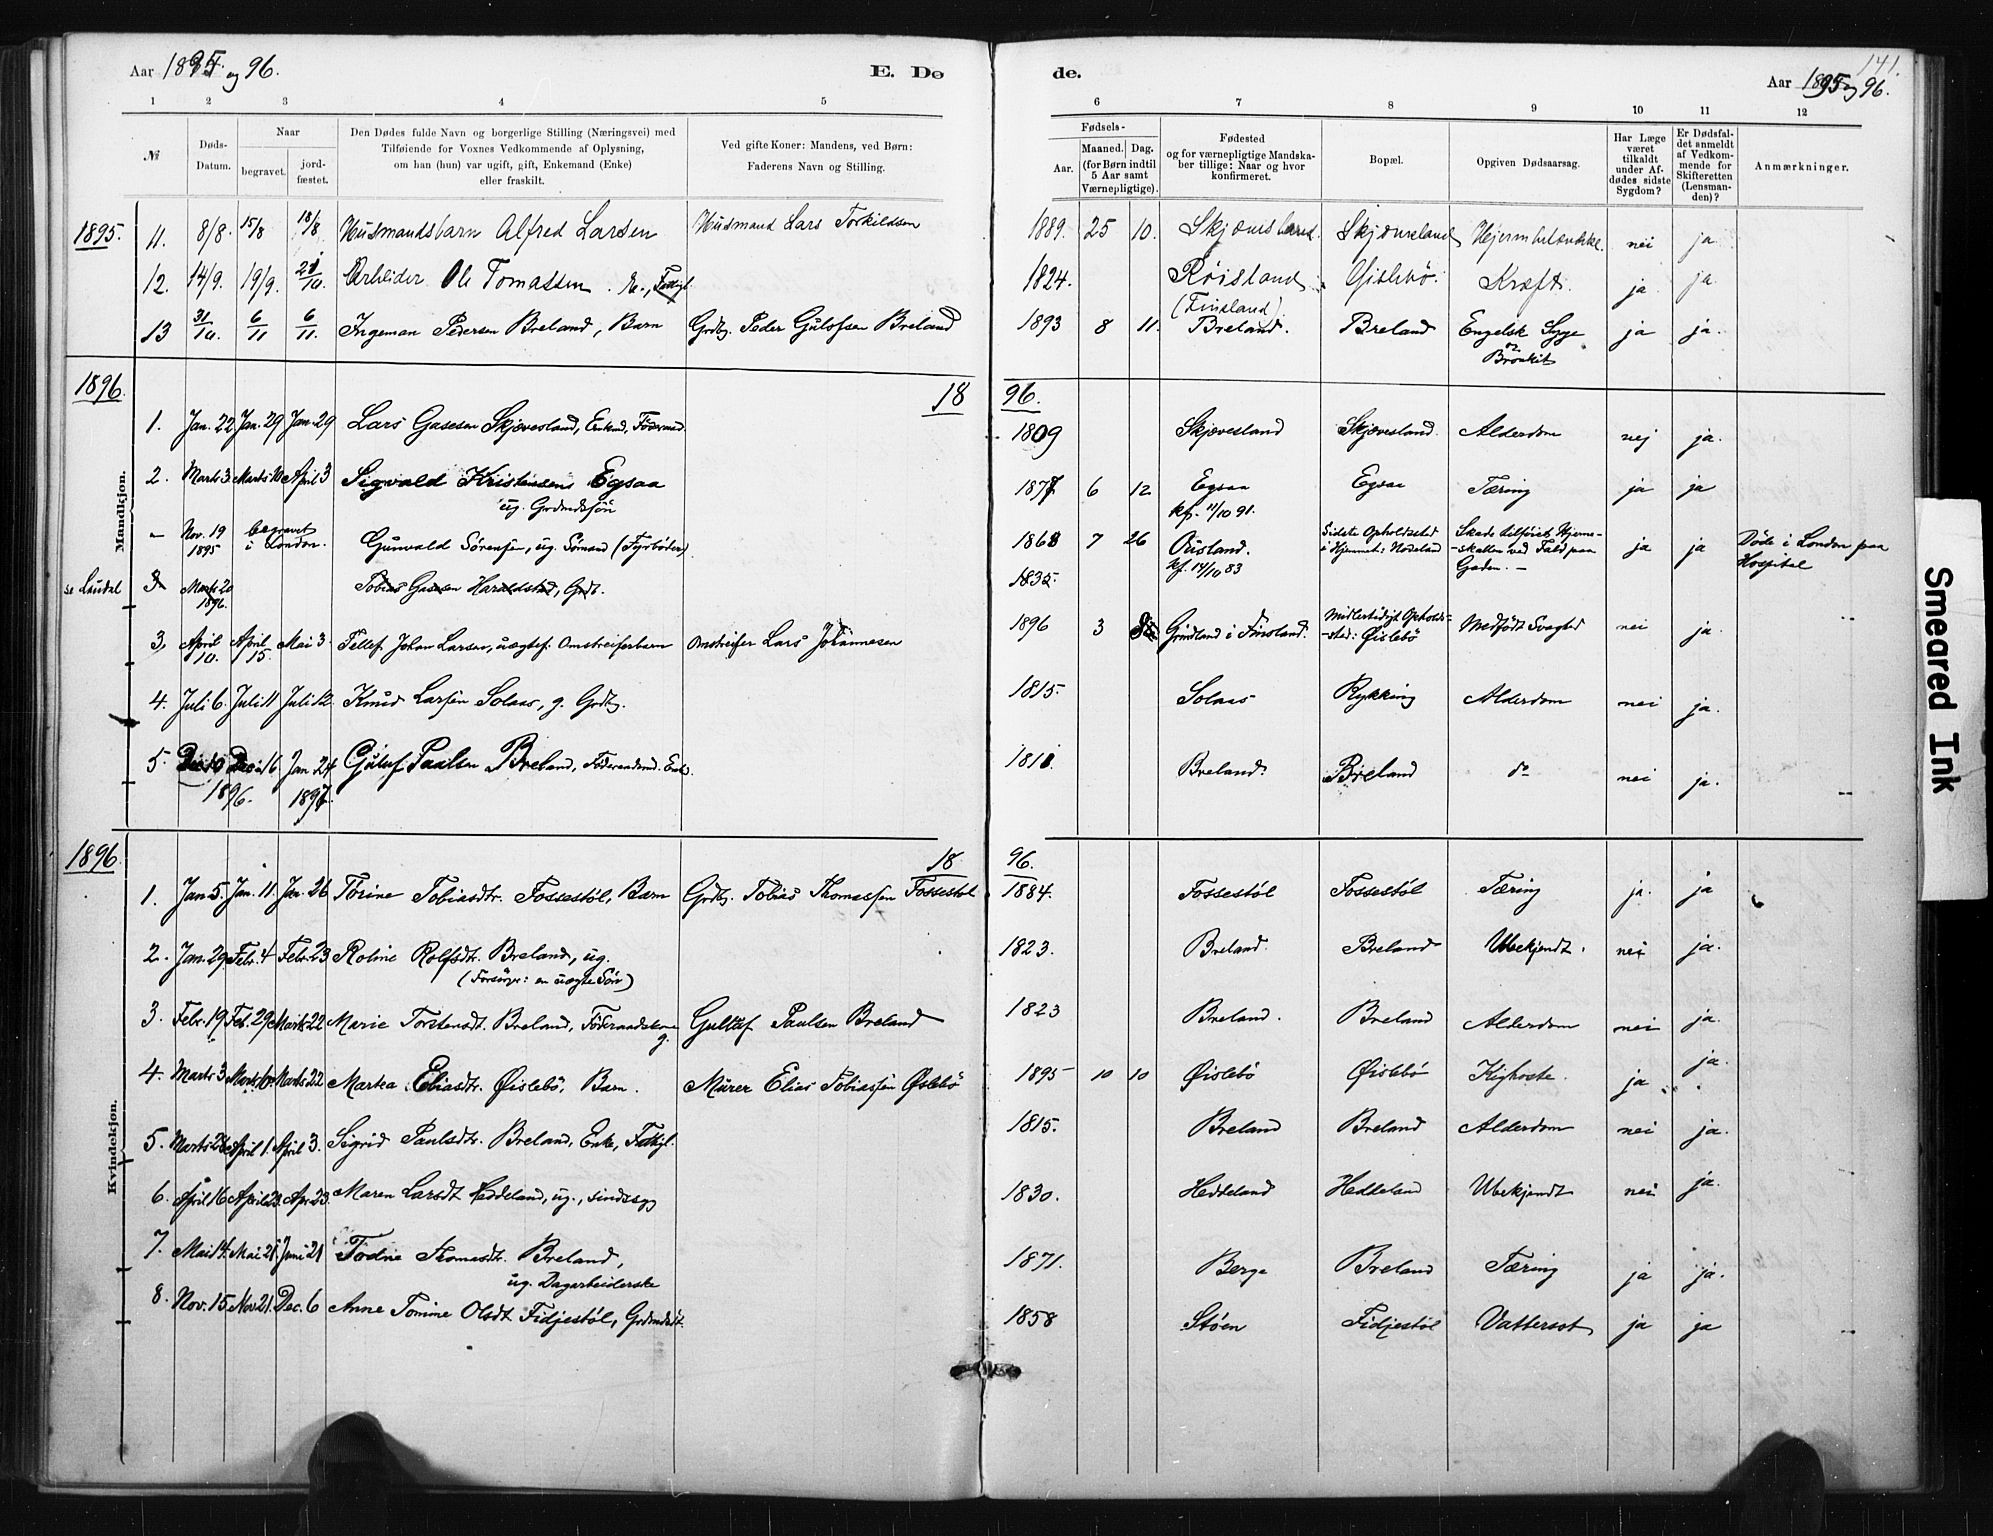 Aar 1895 og 96.
E. Dø
de.
141.
Aar 1895 og 96.
1 2 3 4 5
6 7 8 9 10 11 12
№
Døds-
Datum.
Naar
begravet.
jord-
fæstet.
Den Dødes fulde Navn og borgerlige Stilling (Næringsvei) med
Tilføiende for Voxnes Vedkommende af Oplysning,
om han (hun) var ugift, gift, Enkemand (Enke)
eller fraskilt.
Ved gifte Koner: Mandens, ved Børn:
Faderens Navn og Stilling.
Fødsels-
Aar.
Maaned. Dag.
(for Børn indtil
5 Aar samt
Værnepligtige).
Fødested
og for værnepligtige Mandska-
ber tillige: Naar og hvor
konfirmeret.
Bopæl.
Opgiven Dødsaarsag.
Har Læge
været
tilkaldt
under Af-
dødes sidste
Sygdom?
Er Dødsfal-
det anmeldt
af Vedkom-
mende for
Skifteretten
(Lensman-
den)?
Anmærkninger.
1895. 11. 8/8. 15/8 18/8 Husmandsbarn Alfred Larsen Husmand Lars Torkildsen 1889. 25 10. Skjævesland Skjævesland nei ja
12. 14/9. 19/9. /10. Arbeider Ole Tomassen 1824. Røisland (Finsland) Øislebö Kræft. ja ja
13 31/10. 6/11 6/11. Ingeman Pedersen Breland, Barn Grdbr. Peder Gulofsen Breland 1893 8 11. Breland. Breland Engelsk Syge og Bronkit ja ja.
1896. 18 96.
Mandkjøn.
1. Jan. 22 Jan. 29 Jan. 29 Lars Gasesen Skjævesland, Enkmd, Föderaad. 1809 Skjævesland Skjævesland. Alderdom nej ja.
2. Marts 3 Marts 10 April 3 Sigvald Kristensen Egsaa 1877 6 12 Egsaa Egsaa Tæring ja ja
ug. Grdmdssøn kf. 11/10 91.
- Nov. 19 1895 begravet i London. Gunvald Sörensen, ug. Sömand (Fyrböder) 1868 7 26 Øusland. kf. 14/10 83 Sidste Opholdssted i Hjemmet: Nodeland Skade tilføiet Hjerne-
-skallen ved Fald paa Gaden. - ja ja Døde i London paa Hospital
se Laudal 3 Marts 20 1896. Tobias Gasesen Haraldstad, Grdb. 1835.
3, April 10. April 15. Mai 3. Tellef Johan Larsen, uægtef. Omstreiferbarn Omstreifer Lars Johannesen 1896 3 Grindland i Finsland. Midlertidigt Opholds-
-sted: Øislebö Medfödt Svaghed nei ja.
4. Juli 6. Juli 11 Juli 12. Knud Larsen Solaas, g. Grdbr. 1815. Solaas Rykking Alderdom nei ja.
5. Dec. 10 Dec. 16 Jan 24 Guluf Paulsen Breland, Föderaadsmd. Enkm. 1811. Breland. Breland do nei ja.
1896. 1897.
1896. 18 96.
Kvindekjøn.
1. Jan 5. Jan. 11. Jan. 26 Torine Tobiasdtr. Fossestöl, Barn Grdbr. Tobias Thomassen Fossestöl 1884. Fossestöl Fossestöl Tæring ja. ja
2. Jan. 29 Febr. 4 Febr. 23 Roline Rolfsdtr. Breland, ug. 1823. Breland. Breland Ubekjendt. nei ja.
(Forsörger: en uægte Sön)
3. Febr. 19 Feb. 29 Marts 22 Marie Torstensdt. Breland, Föderaadskone g. Gulluf Paulsen Breland 1823 Breland. Breland Alderdom nei ja.
4. Marts 3 Marts 6. Marts 22 Martea Eliasdtr. Øislebö, Barn. Murer Elias Tobiassen Øslebö 1895 10 10 Øislebö Øislebö Kighoste. ja ja.
5. Marts April 1. April 3. Sigrid Paulsdtr. Breland, Enke, Fatigl. 1815. Breland Breland Alderdom nei ja.
6. April 16 April 23. Apr. 23. Maren Larsdt Heddeland, ug., sindssyg 1830. Heddeland Heddeland Ubekjendt nei ja.
7. Mai 14. Mai 21. Juni 21 Todne Thomasdtr. Breland, 1871. Berge Breland Tæring ja ja.
ug. Dagarbeiderske
8. Nov. 15 Nov 21. Dec. 6 Anne Tomine Olsdt Fidjestöl, Grdmdsdt. 1858 Støen Fidjestöl Vattersot ja ja
Smeared Ink